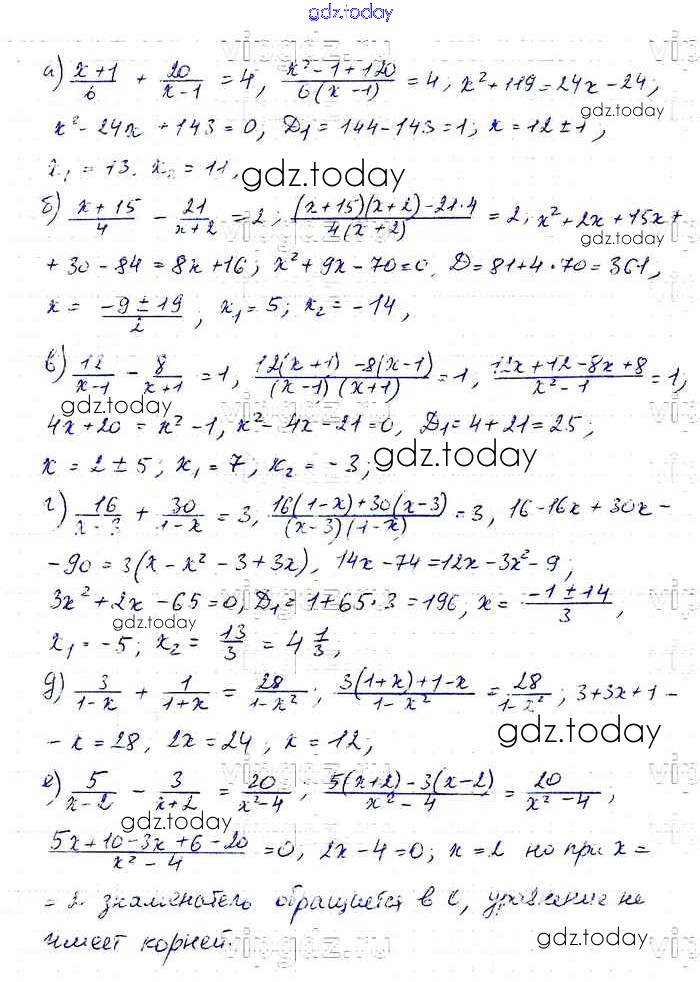 gdz.today
а) (x+1)/6 + 20/(x-1) = 4, (x²-1+120)/(6(x-1)) = 4; x²+119=24x-24;
gdz.today
x²-24x+143=0; D₁=144-143=1; x=12±1;
x₁=13. x₂=11,
gdz.today
б) (x+15)/4 - 21/(x+2) = 2; ((x+15)(x+2)-21·4)/(4(x+2)) = 2; x²+2x+15x+
gdz.today
+30-84=8x+16; x²+9x-70=0, D=81+4·70=361,
x = (-9±19)/2; x₁=5; x₂=-14,
в) 12/(x-1) - 8/(x+1) = 1, (12(x+1)-8(x-1))/((x-1)(x+1)) = 1, (12x+12-8x+8)/(x²-1) = 1;
gdz.today
4x+20=x²-1, x²-4x-21=0, D₁=4+21=25;
x=2±5; x₁=7, x₂=-3;
gdz.today
г) 16/(x-3) + 30/(1-x) = 3, (16(1-x)+30(x-3))/((x-3)(1-x)) = 3, 16-16x+30x-
-90=3(x-x²-3+3x), 14x-74=12x-3x²-9;
3x²+2x-65=0, D₁=1+65·3=196, x=(-1±14)/3,
gdz.today
x₁=-5; x₂=13/3=4 1/3;
д) 3/(1-x) + 1/(1+x) = 28/(1-x²); (3(1+x)+1-x)/(1-x²) = 28/(1-x²); 3+3x+1-
gdz.today
-x=28, 2x=24; x=12;
е) 5/(x-2) - 3/(x+2) = 20/(x²-4); (5(x+2)-3(x-2))/(x²-4) = 20/(x²-4);
gdz.today
(5x+10-3x+6-20)/(x²-4) = 0, 2x-4=0; x=2 но при x=
=2 знаменатель обращается в 0, уравнение не
имеет корней.
gdz.today